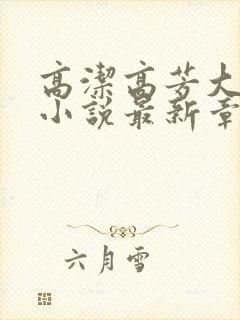 高潔高芳大
小說最新章
六月雪